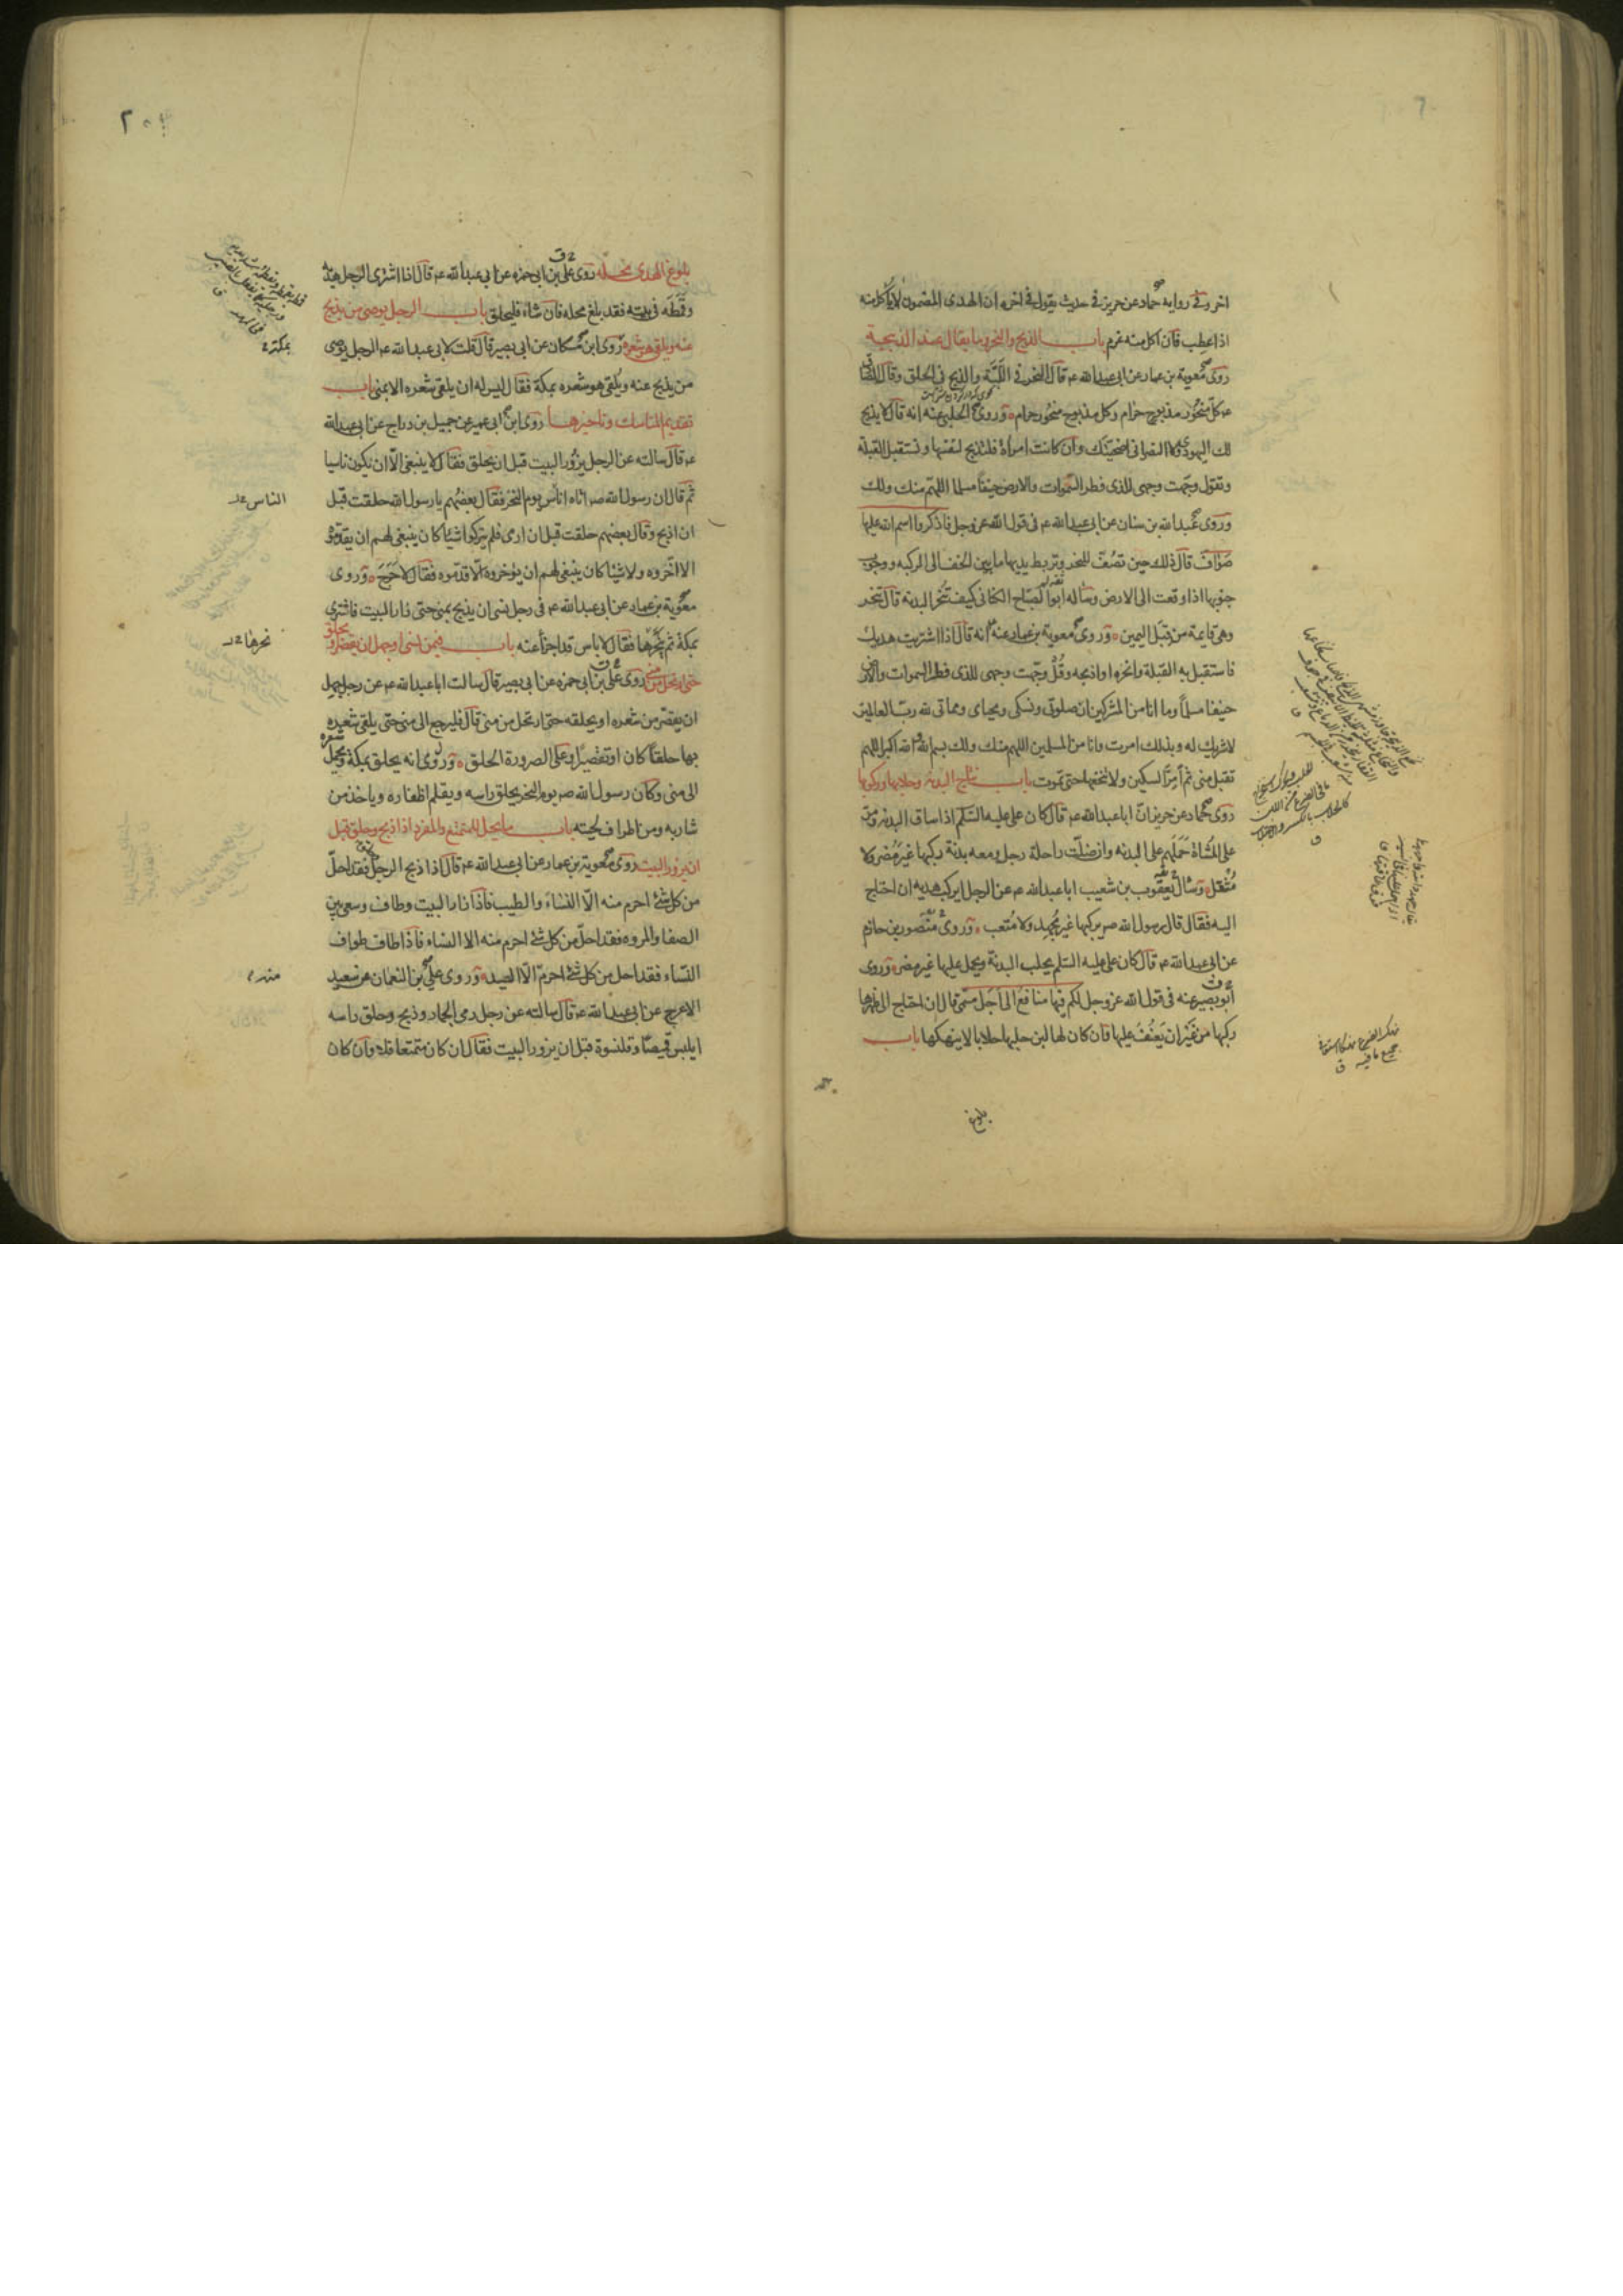 اخر وفى رواية حماد عن حريز فى حديث يقول فى اخره ان الهدى المضمون لا ياكل منه
اذا عطب فان اكل منه غرم باب الذبح والنحر وما يقال عند الذبيحة
روى معوية بن عمار عن ابى عبدالله ع قال النحر فى اللبة والذبح فى الحلق وقال الصادق
ع كل منحور مذبوح حرام وكل مذبوح منحور حرام وروى الحلبى عنه انه قال لا يذبح
لك اليهودى ولا النصرانى اضحيتك وان كانت امراة فلتذبح لنفسها وتستقبل القبلة
وتقول وجهت وجهى للذى فطر السموات والارض حنيفا مسلما اللهم منك ولك
وروى عبدالله بن سنان عن ابى عبدالله ع فى قول الله عز وجل فاذكروا اسم الله عليها
صواف قال ذلك حين تصف للنحر وتربط يديها ما بين الخف الى الركبه ووجوب
جنوبها اذا وقعت الى الارض وساله ابوالصباح الكنانى كيف تنحر البدنة قال تنحر
وهى قايمة من قبل اليمين وروى معوية بن عمار عنه انه قال اذا اشتريت هديك
فاستقبل به القبلة وانحره او اذبحه وقل وجهت وجهى للذى فطر السموات والارض
حنيفا مسلما وما انا من المشركين ان صلوتى ونسكى ومحياى ومماتى لله رب العالمين
لا شريك له وبذلك امرت وانا من المسلمين اللهم منك ولك بسم الله والله اكبر اللهم
تقبل منى ثم امر السكين ولا تنخعها حتى تموت باب نتاج البدنه وحلابها وركوبها
روى حماد عن حريز ان ابا عبدالله ع قال كان على عليه السلم اذا ساق البدنة ومر
على المشاة حملهم على البدنه وان ضلت راحلة رجل ومعه بدنة ركبها غير مضر ولا
مثقل وسال يعقوب بن شعيب ابا عبدالله ع عن الرجل ايركب هديه ان احتاج
اليه فقال قال رسول الله ص يركبها غير مجهد ولا متعب وروى منصور بن حازم
عن ابى عبدالله ع قال كان على عليه السلم يحلب البدنة ويحمل عليها غير مضر وروى
ابو بصير عنه فى قول الله عز وجل لكم فيها منافع الى اجل مسمى قال ان احتاج الى ظهرها
ركبها من غير ان يعنف عليها فان كان لها لبن حلبها حلابا لا ينهكها باب
بلوغ
بلوغ الهدى محله روى على بن ابى حمزه عن ابى عبدالله ع قال اذا اشترى الرجل هديه
وقمطه فى بيته فقد بلغ محله فان شاء فليحلق باب الرجل يوصى من يذبح
عنه ويلقى هو شعره روى ابن مسكان عن ابى بصير قال قلت لابى عبدالله ع الرجل يوصى
بمكة
من يذبح عنه ويلقى هو شعره بمكة فقال ليس له ان يلقى شعره الا بمنى باب
تقديم المناسك وتاخيرها روى ابن ابى عمير عن جميل بن دراج عن ابى عبدالله
ع قال سالته عن الرجل يزور البيت قبل ان يحلق فقال لا ينبغى الا ان يكون ناسيا
ثم قال ان رسول الله ص اتاه اناس يوم النحر فقال بعضهم يا رسول الله حلقت قبل
الناس
ان اذبح وقال بعضهم حلقت قبل ان ارمى فلم يتركوا شيئا كان ينبغى لهم ان يقدموه
الا اخروه ولا شيئا كان ينبغى لهم ان يؤخروه الا قدموه فقال لا حرج وروى
معوية بن عمار عن ابى عبدالله ع فى رجل نسى ان يذبح بمنى حتى زار البيت فاشترى
بمكة ثم نحرها فقال لا باس قد اجزا عنه باب فيمن نسى او جهل ان يقصر او يحلق
نحرها
حتى ارتحل من منى روى على بن ابى حمزه عن ابى بصير قال سالت ابا عبدالله ع عن رجل جهل
ان يقصر من شعره او يحلقه حتى ارتحل من منى قال فليرجع الى منى حتى يلقى شعره
بها حلقا كان او تقصيرا وعلى الصرورة الحلق وروى انه يحلق بمكة ويحمل شعره
الى منى وكان رسول الله ص يوم النحر يحلق راسه ويقلم اظفاره وياخذ من
شاربه ومن اطراف لحيته باب ما يحل للمتمتع والمفرد اذا ذبح وحلق قبل
ان يزور البيت روى معوية بن عمار عن ابى عبدالله ع قال اذا ذبح الرجل فقد احل
من كل شئ احرم منه الا النساء والطيب فاذا زار البيت وطاف وسعى بين
الصفا والمروه فقد احل من كل شئ احرم منه الا النساء فاذا طاف طواف
النساء فقد احل من كل شئ احرم الا الصيد وروى على بن النعمان عن سعيد
منه
الاعرج عن ابى عبدالله ع قال سالته عن رجل رمى الجمار وذبح وحلق راسه
ايلبس قميصا وقلنسوة قبل ان يزور البيت فقال ان كان متمتعا فلا وان كان